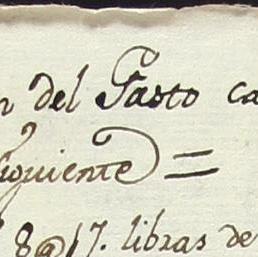 n del Gasto ca
siguiente =
8@17. libras de